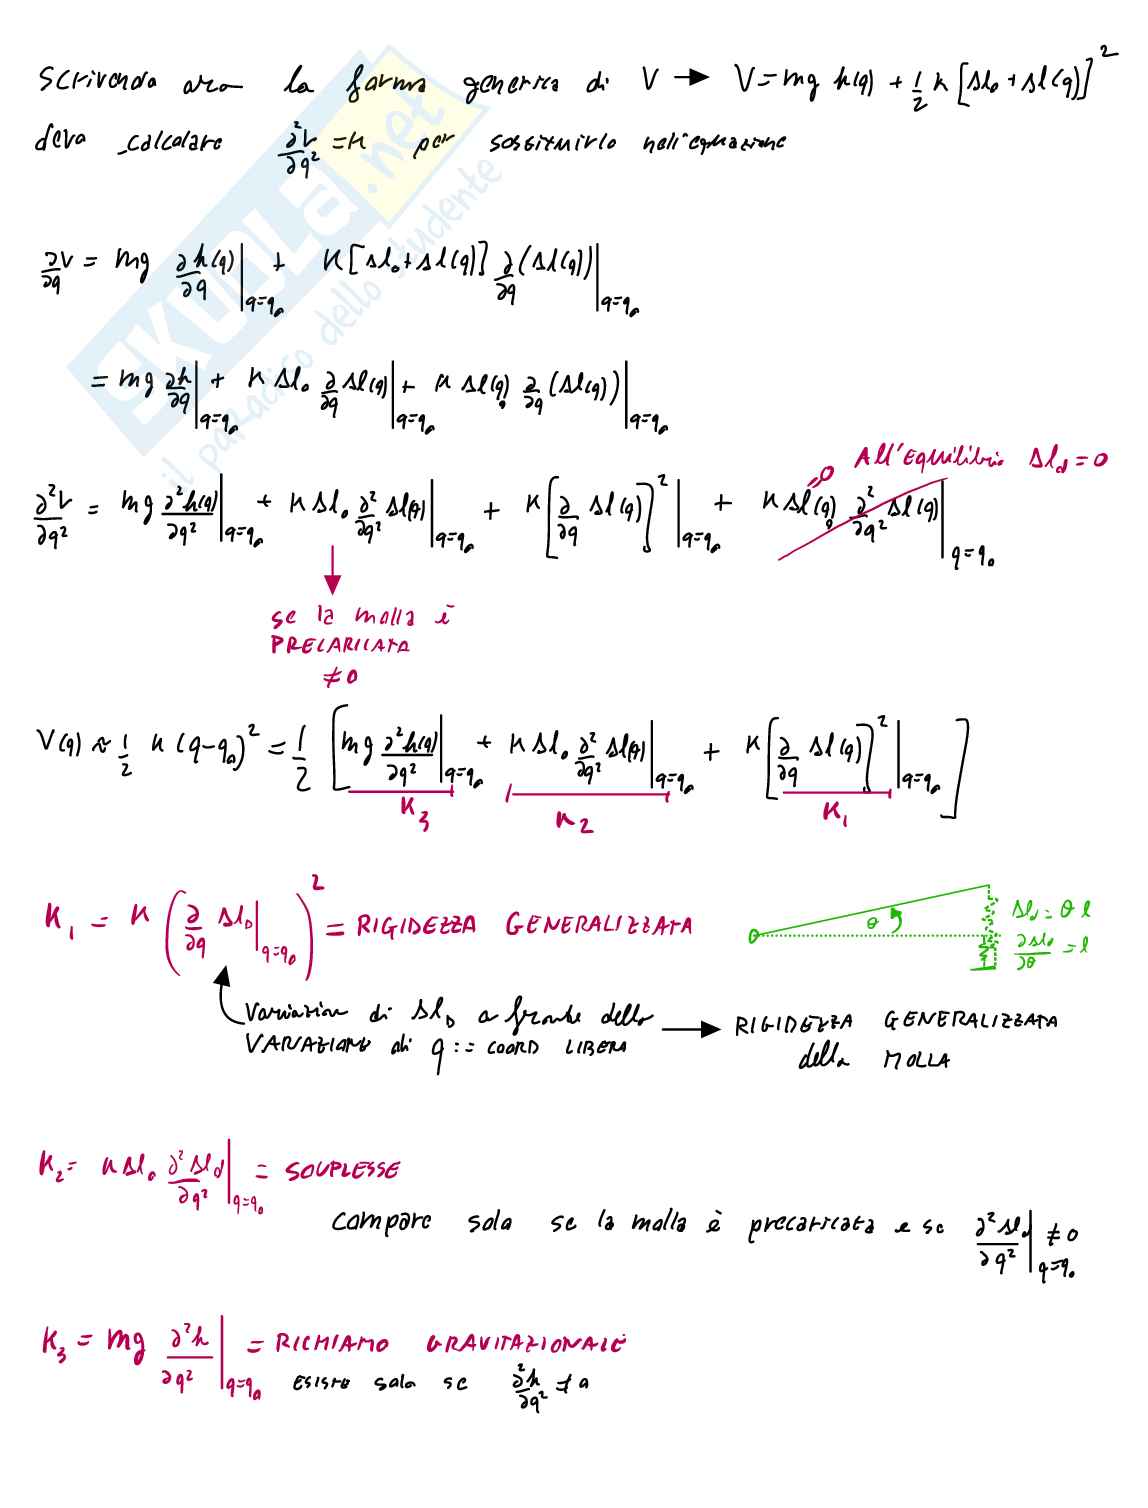 Scrivendo ora la forma generica di V → V = mg h(q) + 1/2 k [Δl₀ + Δl(q)]²
devo calcolare ∂²V/∂q² = k per sostituirlo nell'equazione
∂V/∂q = mg ∂h(q)/∂q |q=q₀ + k[Δl₀ + Δl(q)] ∂/∂q (Δl(q)) |q=q₀
= mg ∂h/∂q |q=q₀ + k Δl₀ ∂/∂q Δl(q) |q=q₀ + k Δl(q) ∂/∂q (Δl(q)) |q=q₀
All'Equilibrio Δl_d = 0
∂²V/∂q² = mg ∂²h(q)/∂q² |q=q₀ + k Δl₀ ∂²/∂q² Δl(q) |q=q₀ + k [∂/∂q Δl(q)]² |q=q₀ + k Δl(q) ∂²/∂q² Δl(q) |q=q₀
=0
se la molla è
PRECARICATA
≠ 0
V(q) ≈ 1/2 k (q-q₀)² = 1/2 [mg ∂²h(q)/∂q² |q=q₀ + k Δl₀ ∂²/∂q² Δl(q) |q=q₀ + k [∂/∂q Δl(q)]² |q=q₀]
K₃ K₂ K₁
K₁ = k (∂/∂q Δl_D |q=q₀)² = RIGIDEZZA GENERALIZZATA
θ
Δl_d = θ l
∂Δl_d/∂θ = l
Variazion di Δl_D a fronte della
VARIAZIONE di q := COORD LIBERA → RIGIDEZZA GENERALIZZATA
della MOLLA
K₂ = k Δl₀ ∂²Δl_d/∂q² |q=q₀ = SOUPLESSE
compare solo se la molla è precaricata e se ∂²Δl_d/∂q² |q=q₀ ≠ 0
K₃ = mg ∂²h/∂q² |q=q₀ = RICHIAMO GRAVITAZIONALE
ESISTE solo se ∂²h/∂q² ≠ 0
SKUOLA.net
il paradiso dello studente